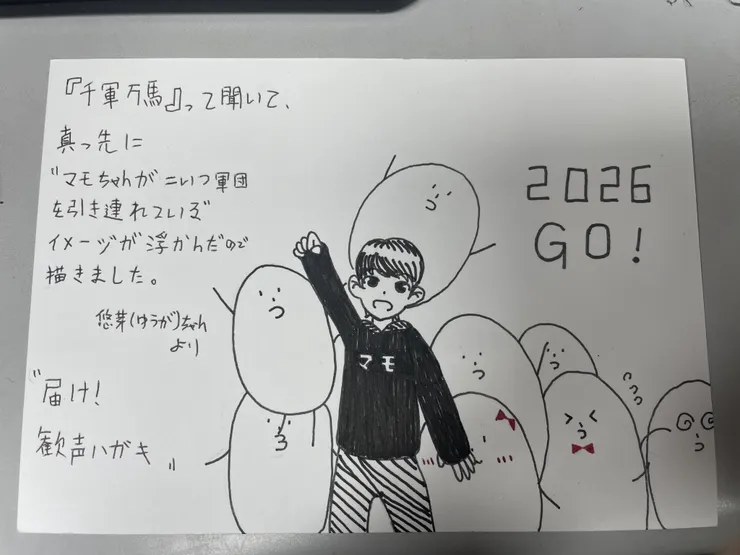 『千軍万馬』って聞いて、
真っ先に
"マモちゃんがこいつ軍団
を引き連れている"
イメージが浮かんだので
描きました。
悠芽(ゆうが)ちゃん
より
"届け!
歓声ハガキ"
2026
GO!
マモ